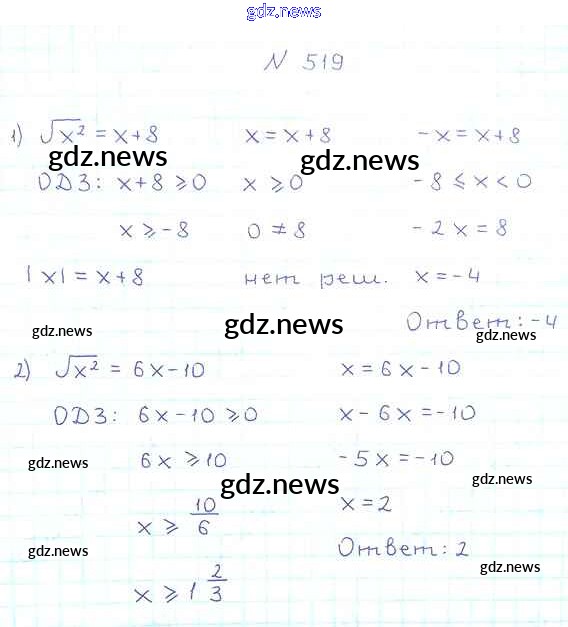 gdz.news
N 519
1) √x² = x+8 x = x+8 -x = x+8
gdz.news gdz.news
ОДЗ: x+8 ⩾ 0 x ⩾ 0 -8 ⩽ x < 0
x ⩾ -8 0 ≠ 8 -2x = 8
|x| = x+8 нет реш. x = -4
Ответ: -4
gdz.news gdz.news gdz.news
2) √x² = 6x-10 x = 6x-10
ОДЗ: 6x-10 ⩾ 0 x-6x = -10
6x ⩾ 10 -5x = -10
gdz.news gdz.news gdz.news
x ⩾ 10/6 x = 2
Ответ: 2
gdz.news gdz.news
x ⩾ 1 2/3